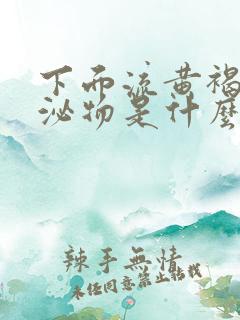 下而流黄褐
泌物是什麽
辣手無情
未经同意禁止转载